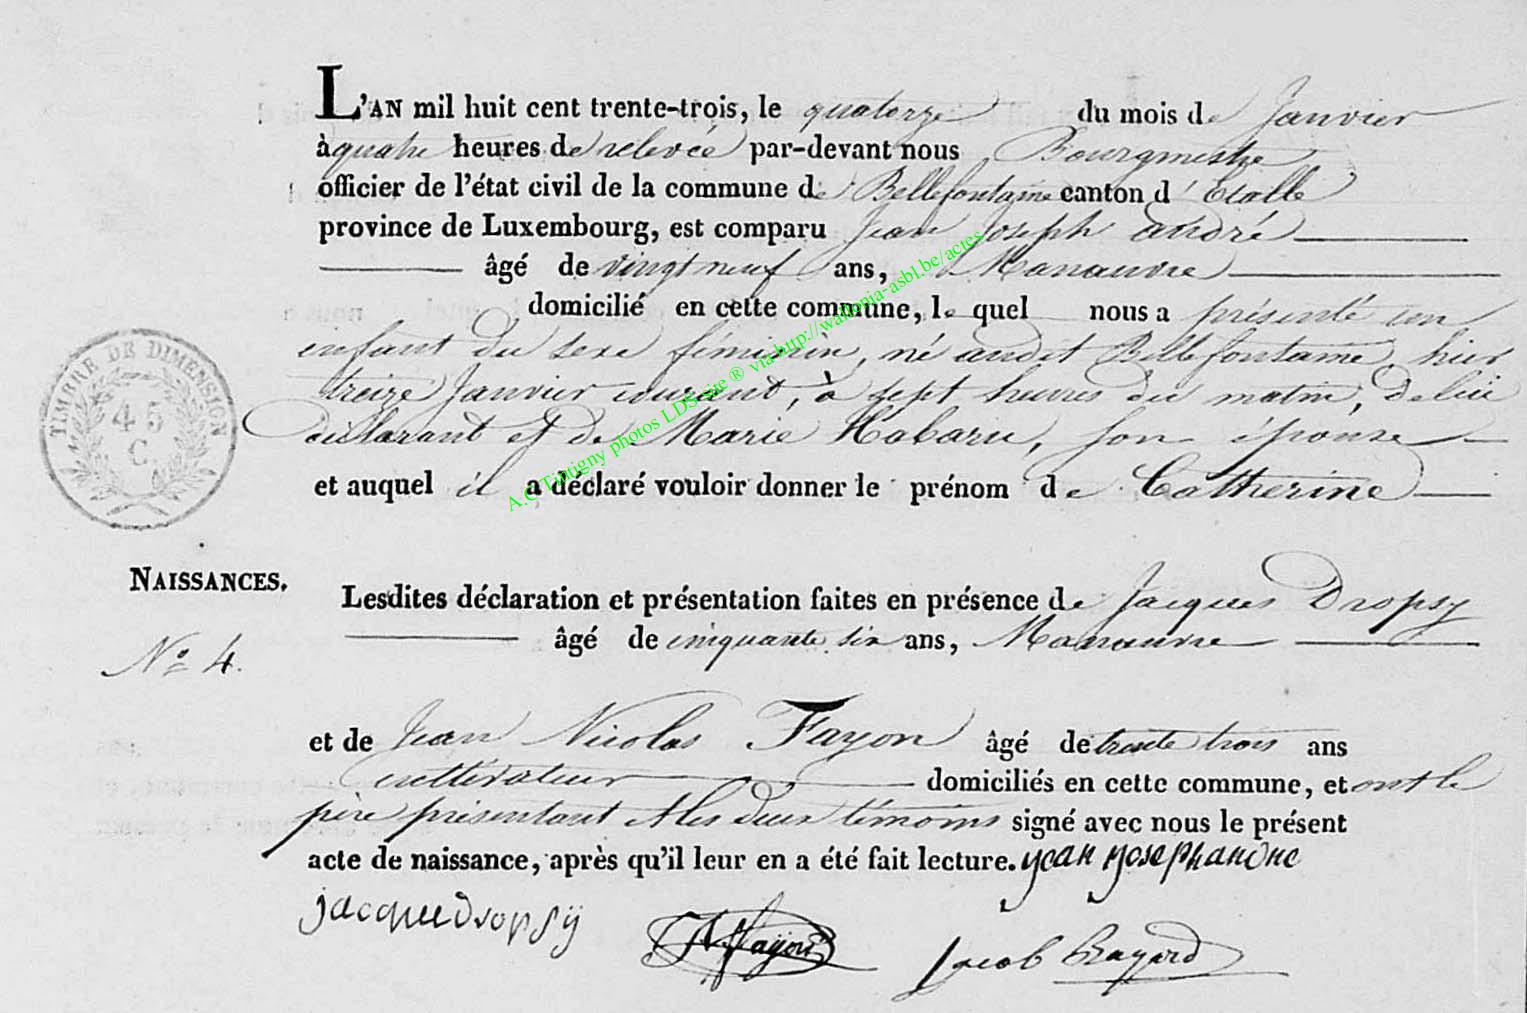 L'AN mil huit cent trente-trois, le quatorze du mois de Janvier
à quatre heures de relevée par-devant nous Bourgmestre
officier de l'état civil de la commune de Bellefontaine canton d'Etalle
province de Luxembourg, est comparu Jean Joseph André
âgé de vingt neuf ans, Manœuvre
domicilié en cette commune, le quel nous a présenté un
enfant du sexe féminin, né audit Bellefontaine, hier
treize Janvier courant, à sept heures du matin, de lui
déclarant et de Marie Habaru, son épouse
et auquel il a déclaré vouloir donner le prénom de Catherine
TIMBRE DE DIMENSION
45
C.
NAISSANCES.
N° 4.
Lesdites déclaration et présentation faites en présence de Jacques Dropsy
âgé de cinquante six ans, Manœuvre
et de Jean Nicolas Fayon âgé de trente trois ans
cultivateur domiciliés en cette commune, et ont le
père présentant et les deux témoins signé avec nous le présent
acte de naissance, après qu'il leur en a été fait lecture. jean josephandre
jacquedropsÿ
Fayon
Jacob
A.C Tintigny photos LDS site ® via http://wallonia-asbl.be/actes